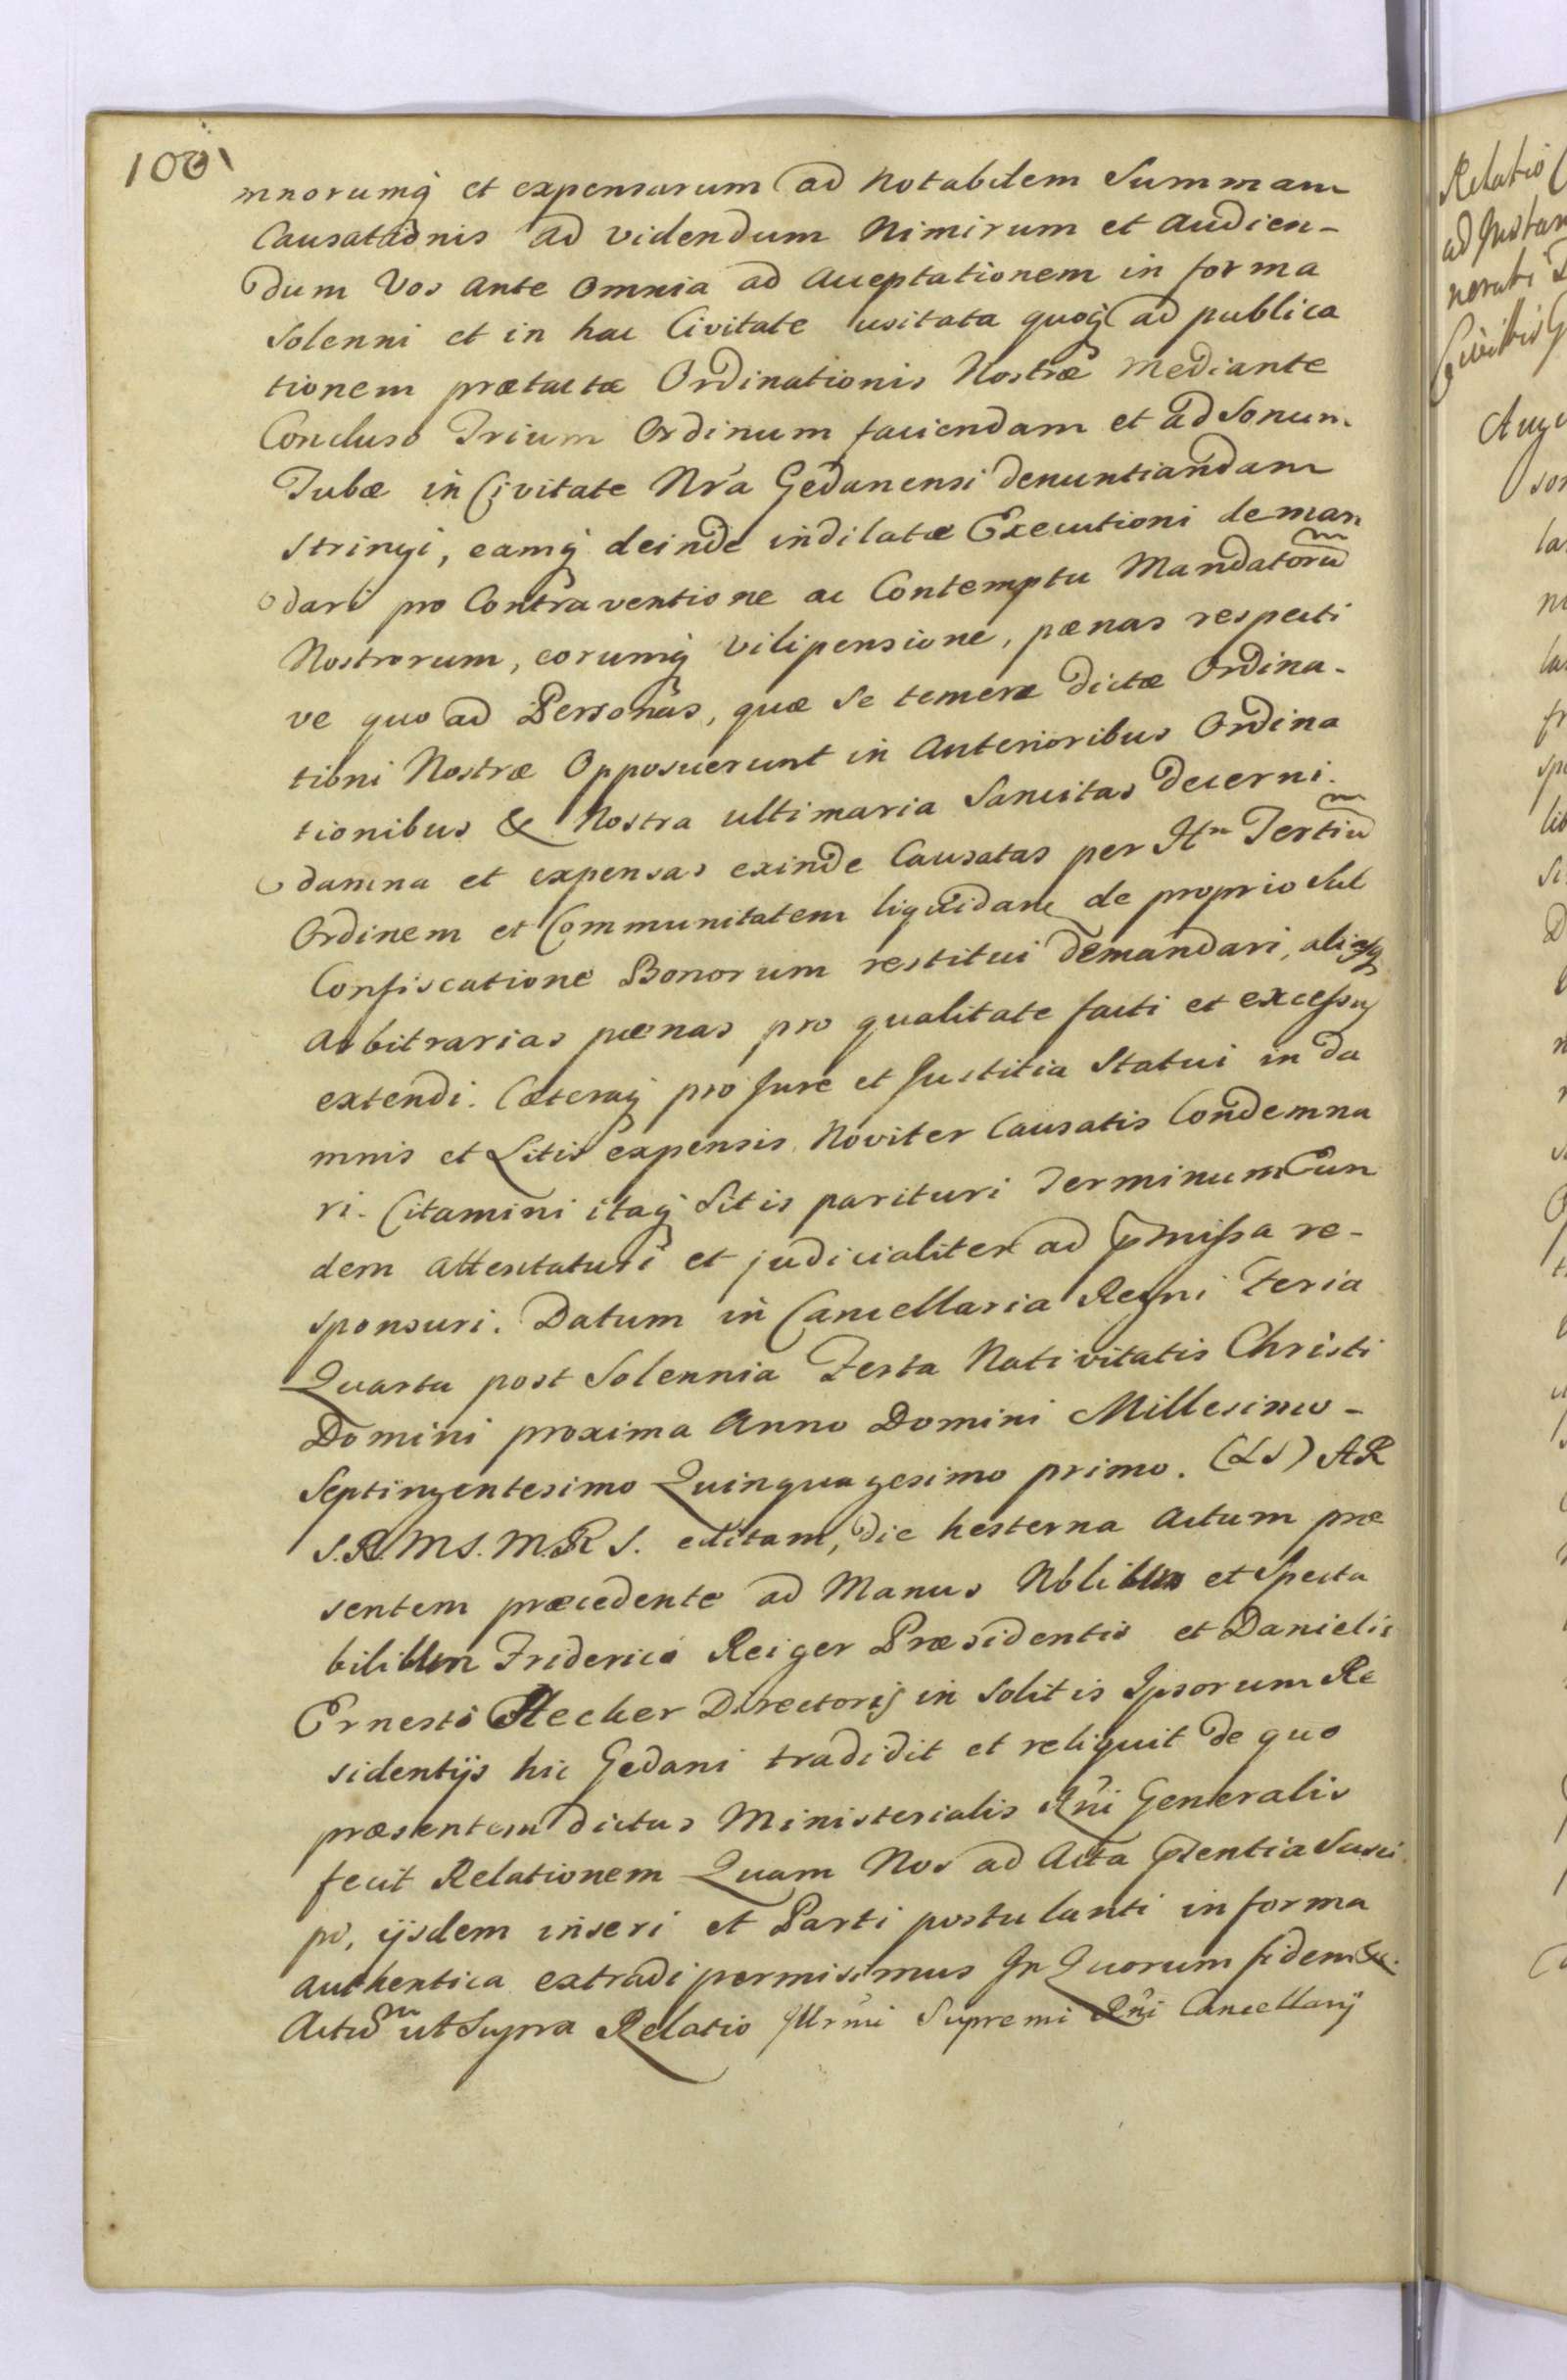 100
mnorumq et expensarum ad Notabilem Summam
Causatadnis ad videndum Nimirum et audien-
dum Vos ante omnia ad acceptationem in forma
solenni et in hac Civitate usitata quoq ad publica
tionem prætactæ Ordinationis Nostræ mediante
Concluso Trium Ordinum faciendam et ad Sonum
Tubæ in Civitate Nra Gedanensi denuntiandam
stringi, eamq deinde indilatæ Executioni deman
dari pro Contraventione ac Contemptu Mandatorũ
Nostrorum, eorumq vilipensione, pænas respecti
ve quo ad Personas, quæ se temere dictæ Ordina-
tioni Nostræ Opposuerunt in anterioribus Ordina
tionibus & Nostra ultimaria Sancitas decerni.
damna et expensas exinde Causatas per Itn Tertiũ
Ordinem et Communitatem liquidand de proprio sub
Confiscatione Bonorum restitui demandari, aliasq
arbitrarias pænas pro qualitate facti et excessus
extendi. Cæteraq pro Jure et Justitia Statui in da
mnis et Litis expensis Noviter Causatis Condemna
ri. Citamini itaq Sitis parituri Terminum Eun
dem attentaturi et judicialiter ad præmissa re-
sponsuri. Datum in Cancellaria Regni Feria
Quarta post Solennia Festa Nativitatis Christi
Domini proxima Anno Domini Millesimo-
Septingentesimo Quinquagesimo primo. (LS) AR
S.R.M S.M.R S. editam, die hesterna actum præ
sentem præcedente ad Manus Nobilium et Specta
bilium Friderici Reiger Præsidentis et Danielis
Ernesti Hecker Directoris in Solitis Ipsorum Re
sidentijs hic Gedani tradidit et reliquit de quo
præsentem dictus Ministerialis Rni Generalis
fecit Relationem Quam Nos ad Acta præsentia Susci
pi, ijsdem inseri et Parti postulanti in forma
authentica extradi permisimus In Quorum fidem &c.
Actũ ut Supra Relatio Illrmi Supremi Rni Cancellarij
Relatio